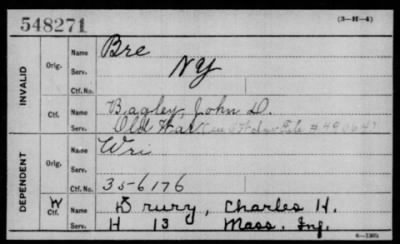 548271
(3-H-4)
INVALID
Orig.
Name
Bre
Serv.
NY
Ctf. No.
Ctf.
Name
Bagley, John D.
Serv.
Old War
DEPENDENT
Orig.
Name
Wri
Serv.
Ctf. No.
356176
W
Ctf.
Name
Drury, Charles H.
Serv.
H 13 Mass. Inf.